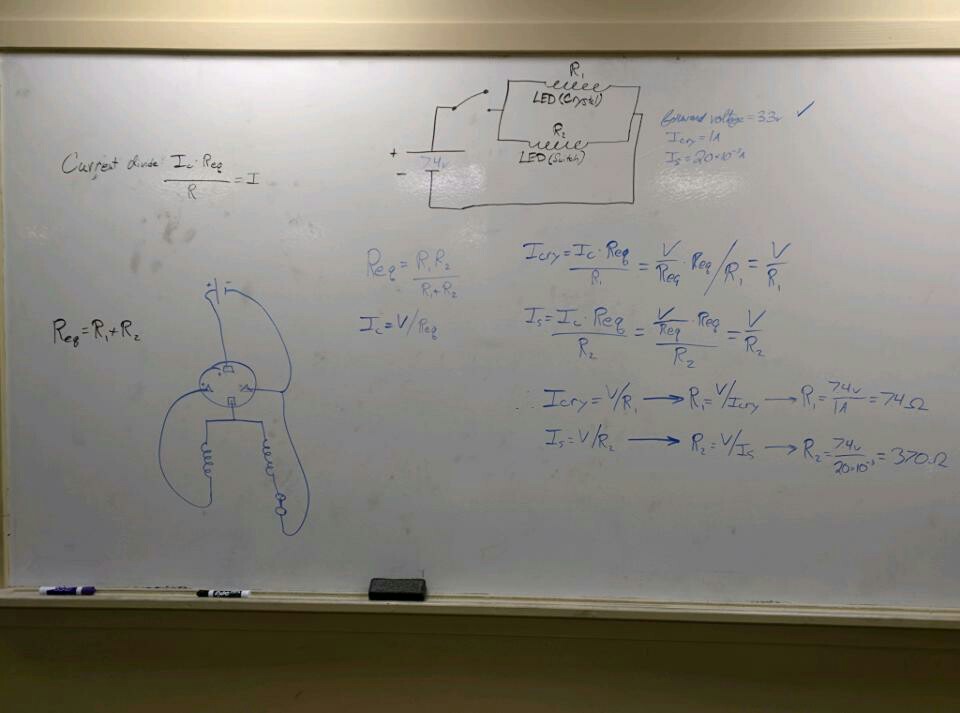 R₁
LED (Crystal)
R₂
LED (Switch)
+
7.4v
-
forward voltage = 3.3v ✓
Icry = 1A
Is = 20×10⁻³A
Current divide Ic · Req / R = I
Req = R₁R₂ / R₁+R₂
Ic = V/Req
Req = R₁+R₂
+ -
Icry = Ic · Req / R₁ = V/Req · Req / R₁ = V/R₁
Is = Ic · Req / R₂ = V/Req · Req / R₂ = V/R₂
∴ Icry = V/R₁ → R₁ = V/Icry → R₁ = 7.4v/1A = 7.4Ω
Is = V/R₂ → R₂ = V/Is → R₂ = 7.4v/20×10⁻³ = 370Ω